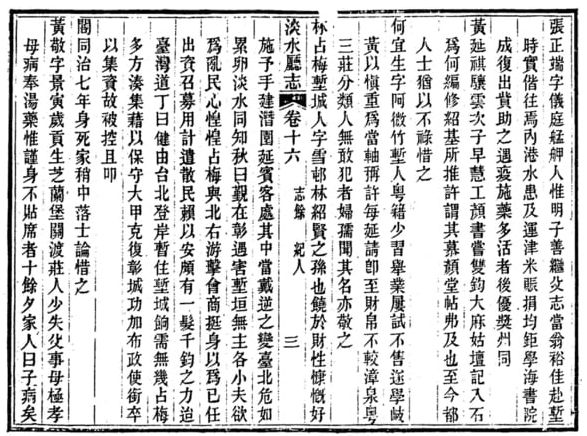 張正瑞字儀庭艋舺人惟明子善繼父志當翁裕佳赴塹
時實偕往焉內港水患及運津米賑捐均鉅學海書院
成復出貲助之遇疫施藥多活者後優獎州同
黃延祺驥雲次子早慧工顏書嘗雙鈎大麻姑壇記入石
為何編修紹基所推許謂其慕顏堂帖弗及也至今都
人士猶以不祿惜之
何宜生字阿微竹塹人粵籍少習舉業屢試不售迨學岐
黃以慎重為當軸稱許每延請卽至財帛不較漳泉粵
三莊分類人無敢犯者婦孺聞其名亦敬之
林占梅塹城人字雪邨林紹賢之孫也饒於財性慷慨好
淡水廳志 卷十六 志餘 紀人 三
施予手建潛園延賓客處其中當戴逆之變臺北危如
累卵淡水同知秋曰覲在彰遇害塹垣無主各小夫欲
為亂民心惶惶占梅與北右游擊會商挺身以為己任
出資召募用計遣散民賴以安頗有一髮千鈞之力迨
臺灣道丁曰健由台北登岸暫住塹城餉需無幾占梅
多方湊集藉以保守大甲克復彰城功加布政使銜卒
以集資故被控且叩
閽同治七年身死家稍中落士論惜之
黃敬字景寅歲貢生芝蘭堡關渡莊人少失父事母極孝
母病奉湯藥惟謹身不貼席者十餘夕家人曰子病矣